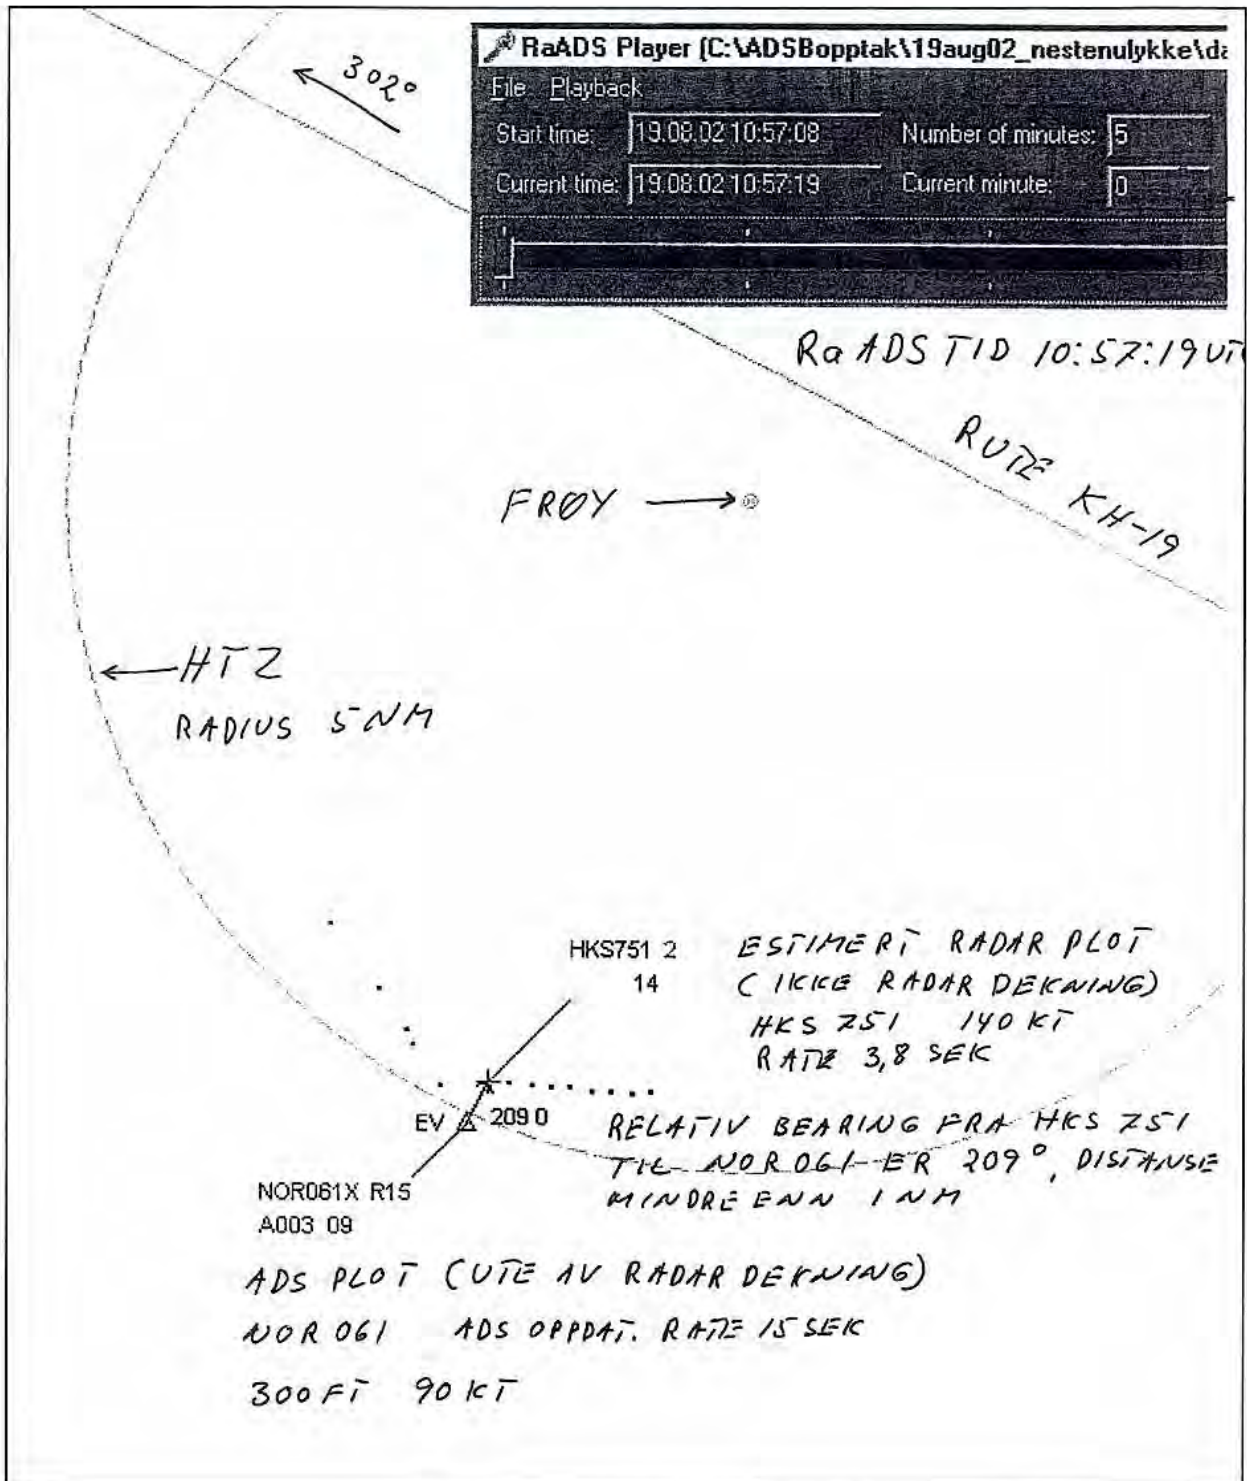 302°
RaADS Player [C:\ADSBopptak\19aug02_nestenulykke\da
File Playback
Start time: 19.08.02 10:57:08 Number of minutes: 5
Current time: 19.08.02 10:57:19 Current minute: 0
RaADS TID 10:57:19 UT
RUTE KH-19
FRØY
HTZ
RADIUS 5 NM
HKS751 2
14
ESTIMERT RADAR PLOT
(IKKE RADAR DEKNING)
HKS 751 140 KT
RATE 3,8 SEK
EV 209 0
RELATIV BEARING FRA HKS 751
TIL NOR 061 ER 209°, DISTANSE
MINDRE ENN 1 NM
NOR061X R15
A003 09
ADS PLOT (UTE AV RADAR DEKNING)
NOR 061 ADS OPPDAT. RATE 15 SEK
300 FT 90 KT